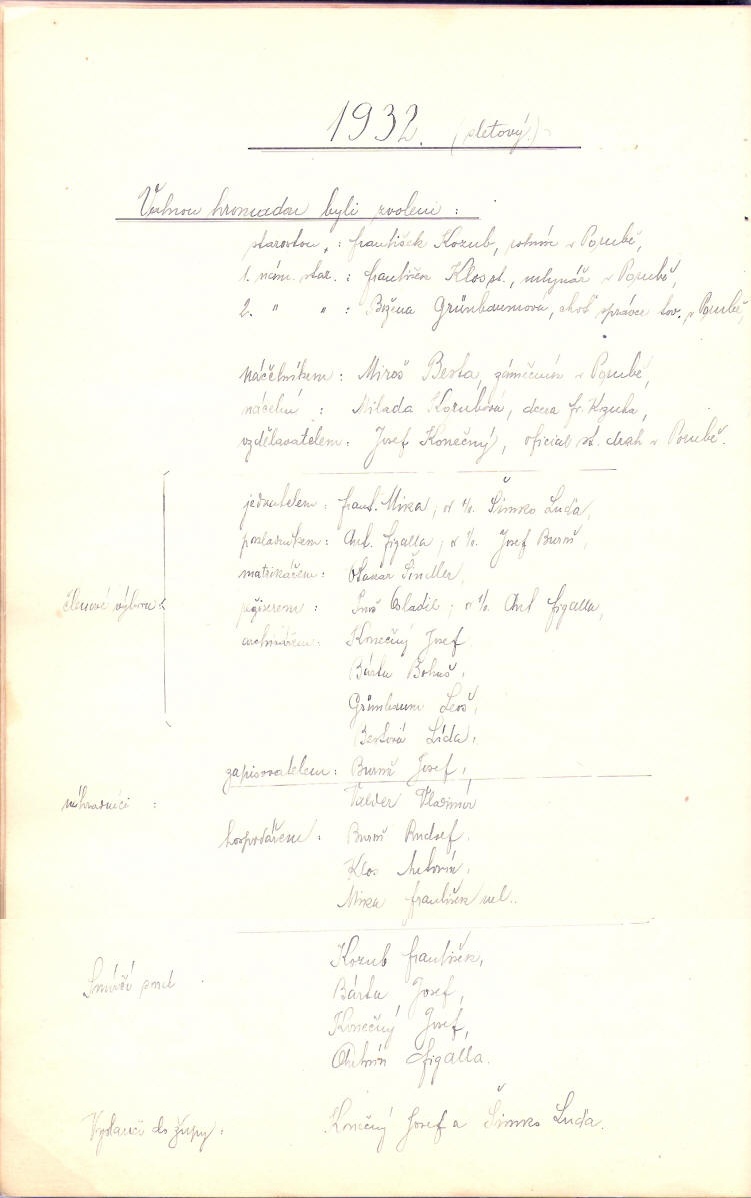 1932. (sletový.)
Valnou hromadou byli zvoleni :
starostou, : František Kozub, rolník v Porubě,
1. nám. star. : František Klos st., mlynář v Porubě,
2. " " : Božena Grünbaumová, choť správce tov. v Porubě,
náčelníkem : Miroš Berta, zámečník v Porubě,
náčelní : Milada Kozubová, dcera fr. Kozuba,
vzdělavatelem : Josef Konečný, oficial st. drah v Porubě.
jednatelem : frant. Mika, od 1/1. Šimko Luďa,
pokladníkem : Ant. figalla, od 1/1. Josef Bureš,
matrikářem : Otakar Šindler,
Ant figalla,
archivářem : Konečný Josef
členové výboru :
Bárta Bohuš,
Grünbaum Leoš,
Bertová Lída,
zapisovatelem : Bureš Josef,
náhradníci : Valder Vladimír
hospodářem : Bureš Rudolf.
Klos Antonín,
Mika františek ml..
Smírčí soud Kozub františek,
Bárta Josef,
Konečný Josef,
Antonín figalla.
Vyslanci do župy : Konečný Josef a Šimko Luďa.